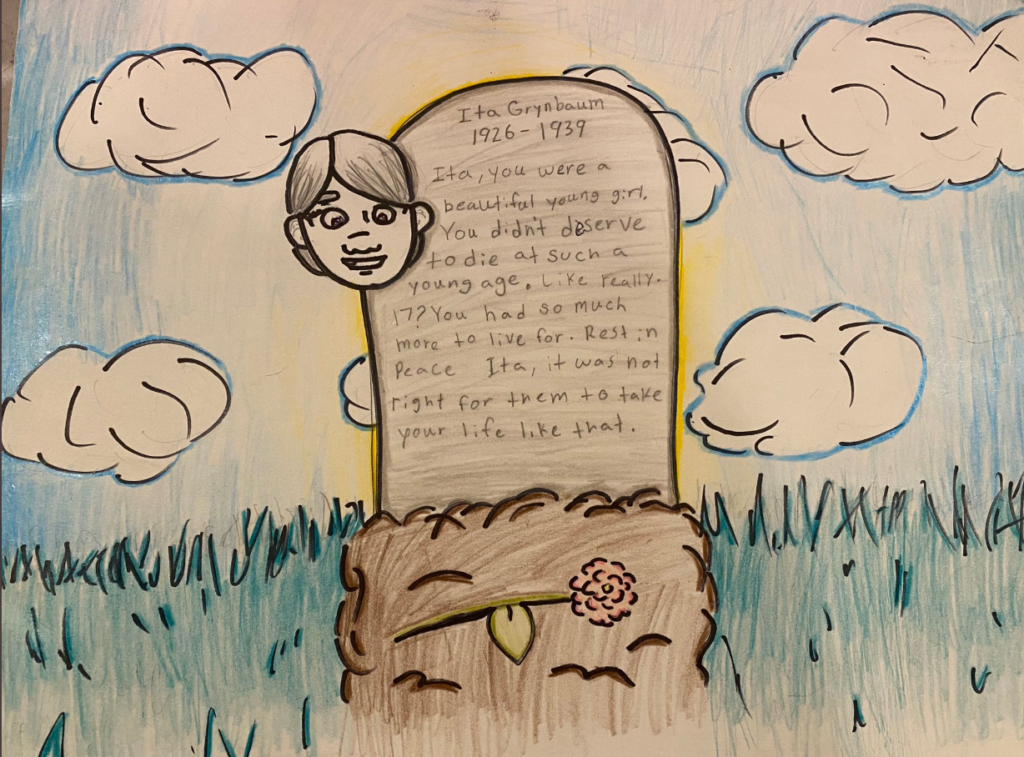 Ita Grynbaum
1926-1939
Ita, you were a
beautiful young girl.
You didn't deserve
to die at such a
young age. Like really.
17? You had so much
more to live for. Rest in
Peace Ita, it was not
right for them to take
your life like that.